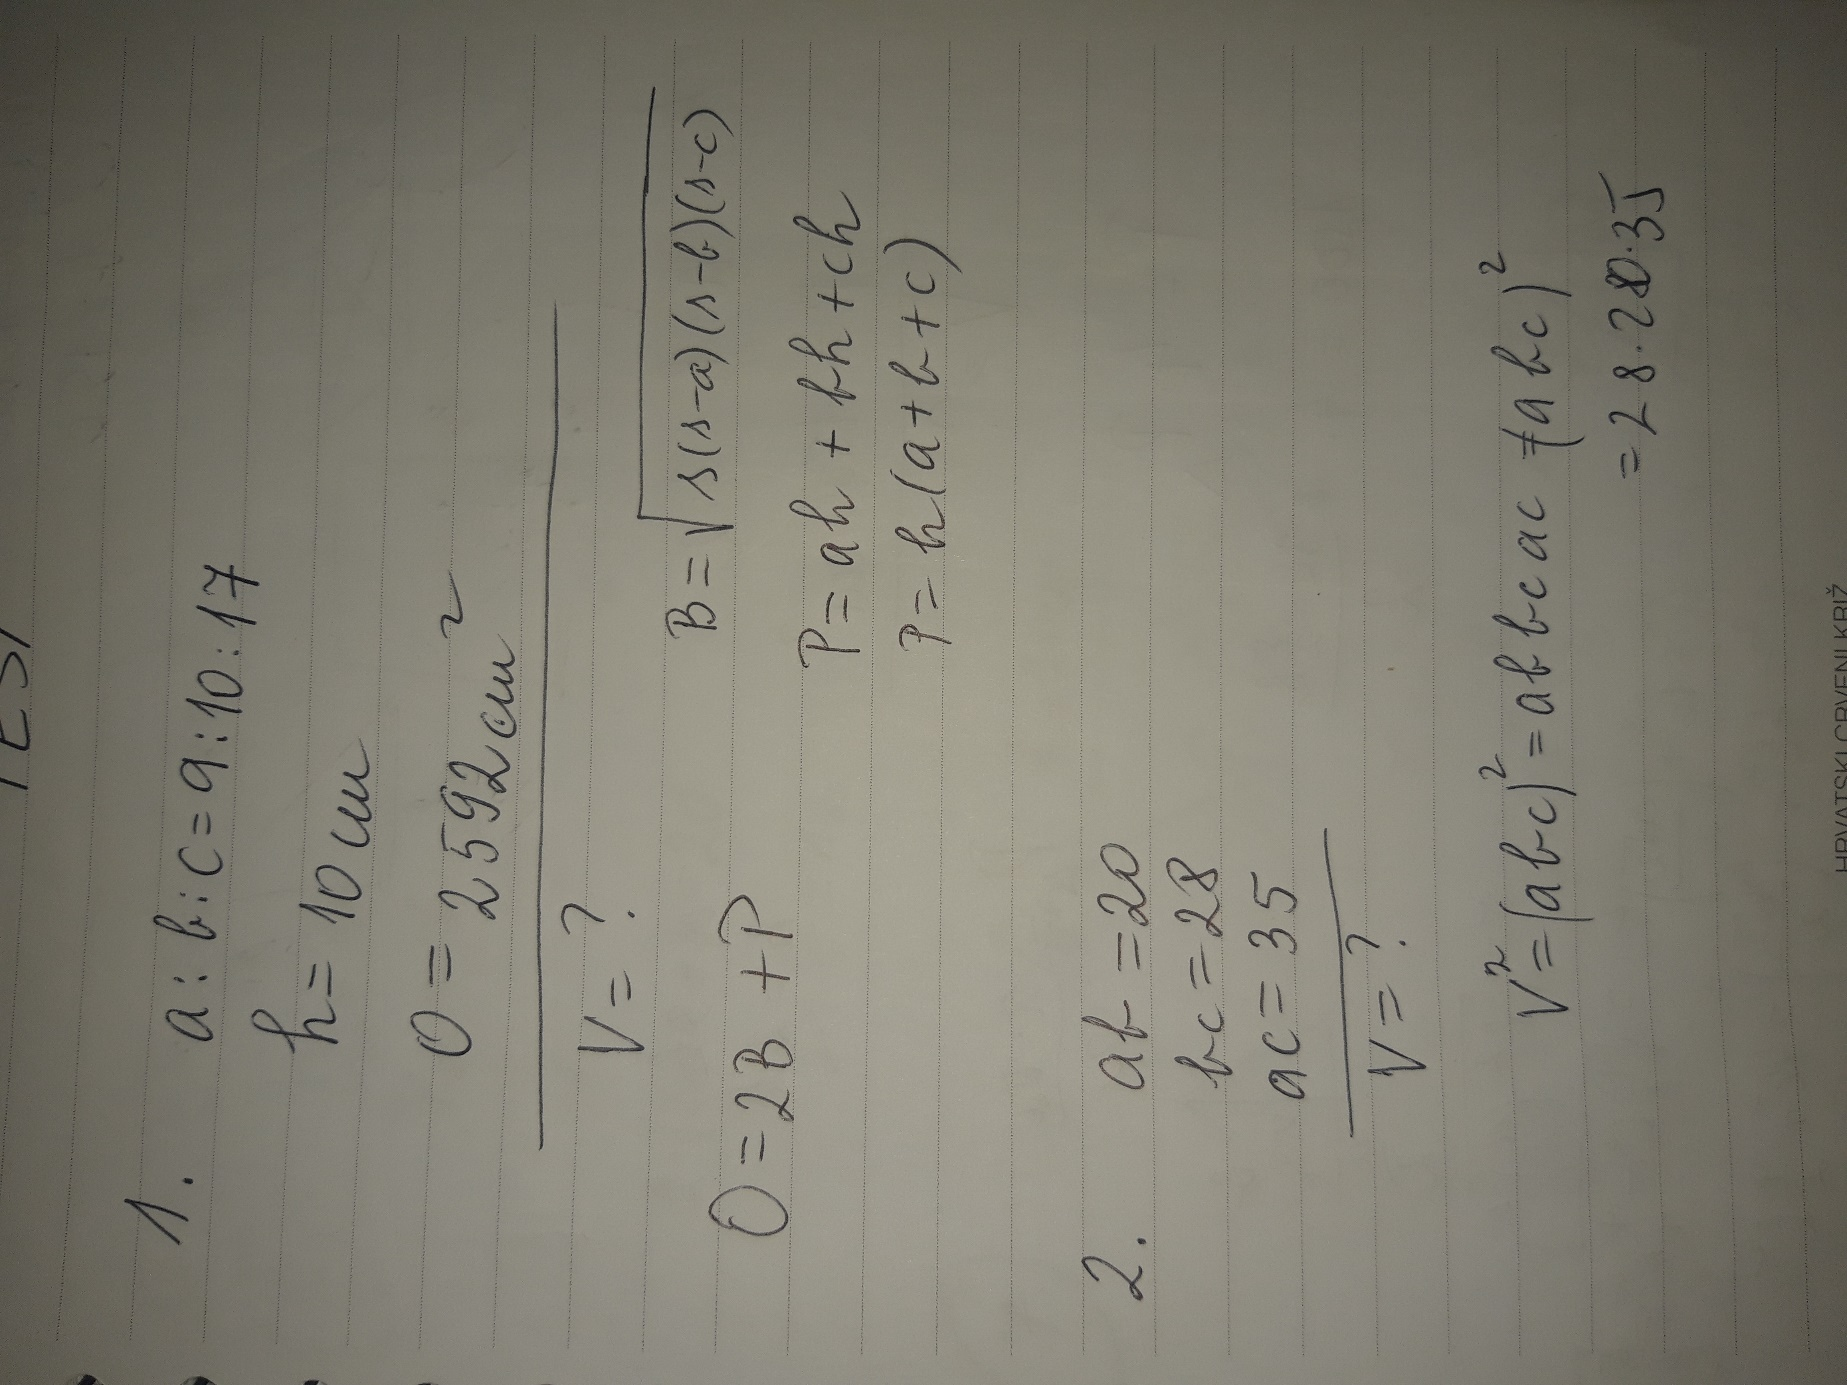 1. a:b:c=9:10:17
h=10cm
O=2592cm²
V=?
O=2B+P
B=√s(s-a)(s-b)(s-c)
P=ah+bh+ch
P=h(a+b+c)
2. ab=20
bc=28
ac=35
V=?
V²=(abc)²=ab bc ac ≠(abc)²
=28·20·35
HRVATSKI CRVENI KRIŽ